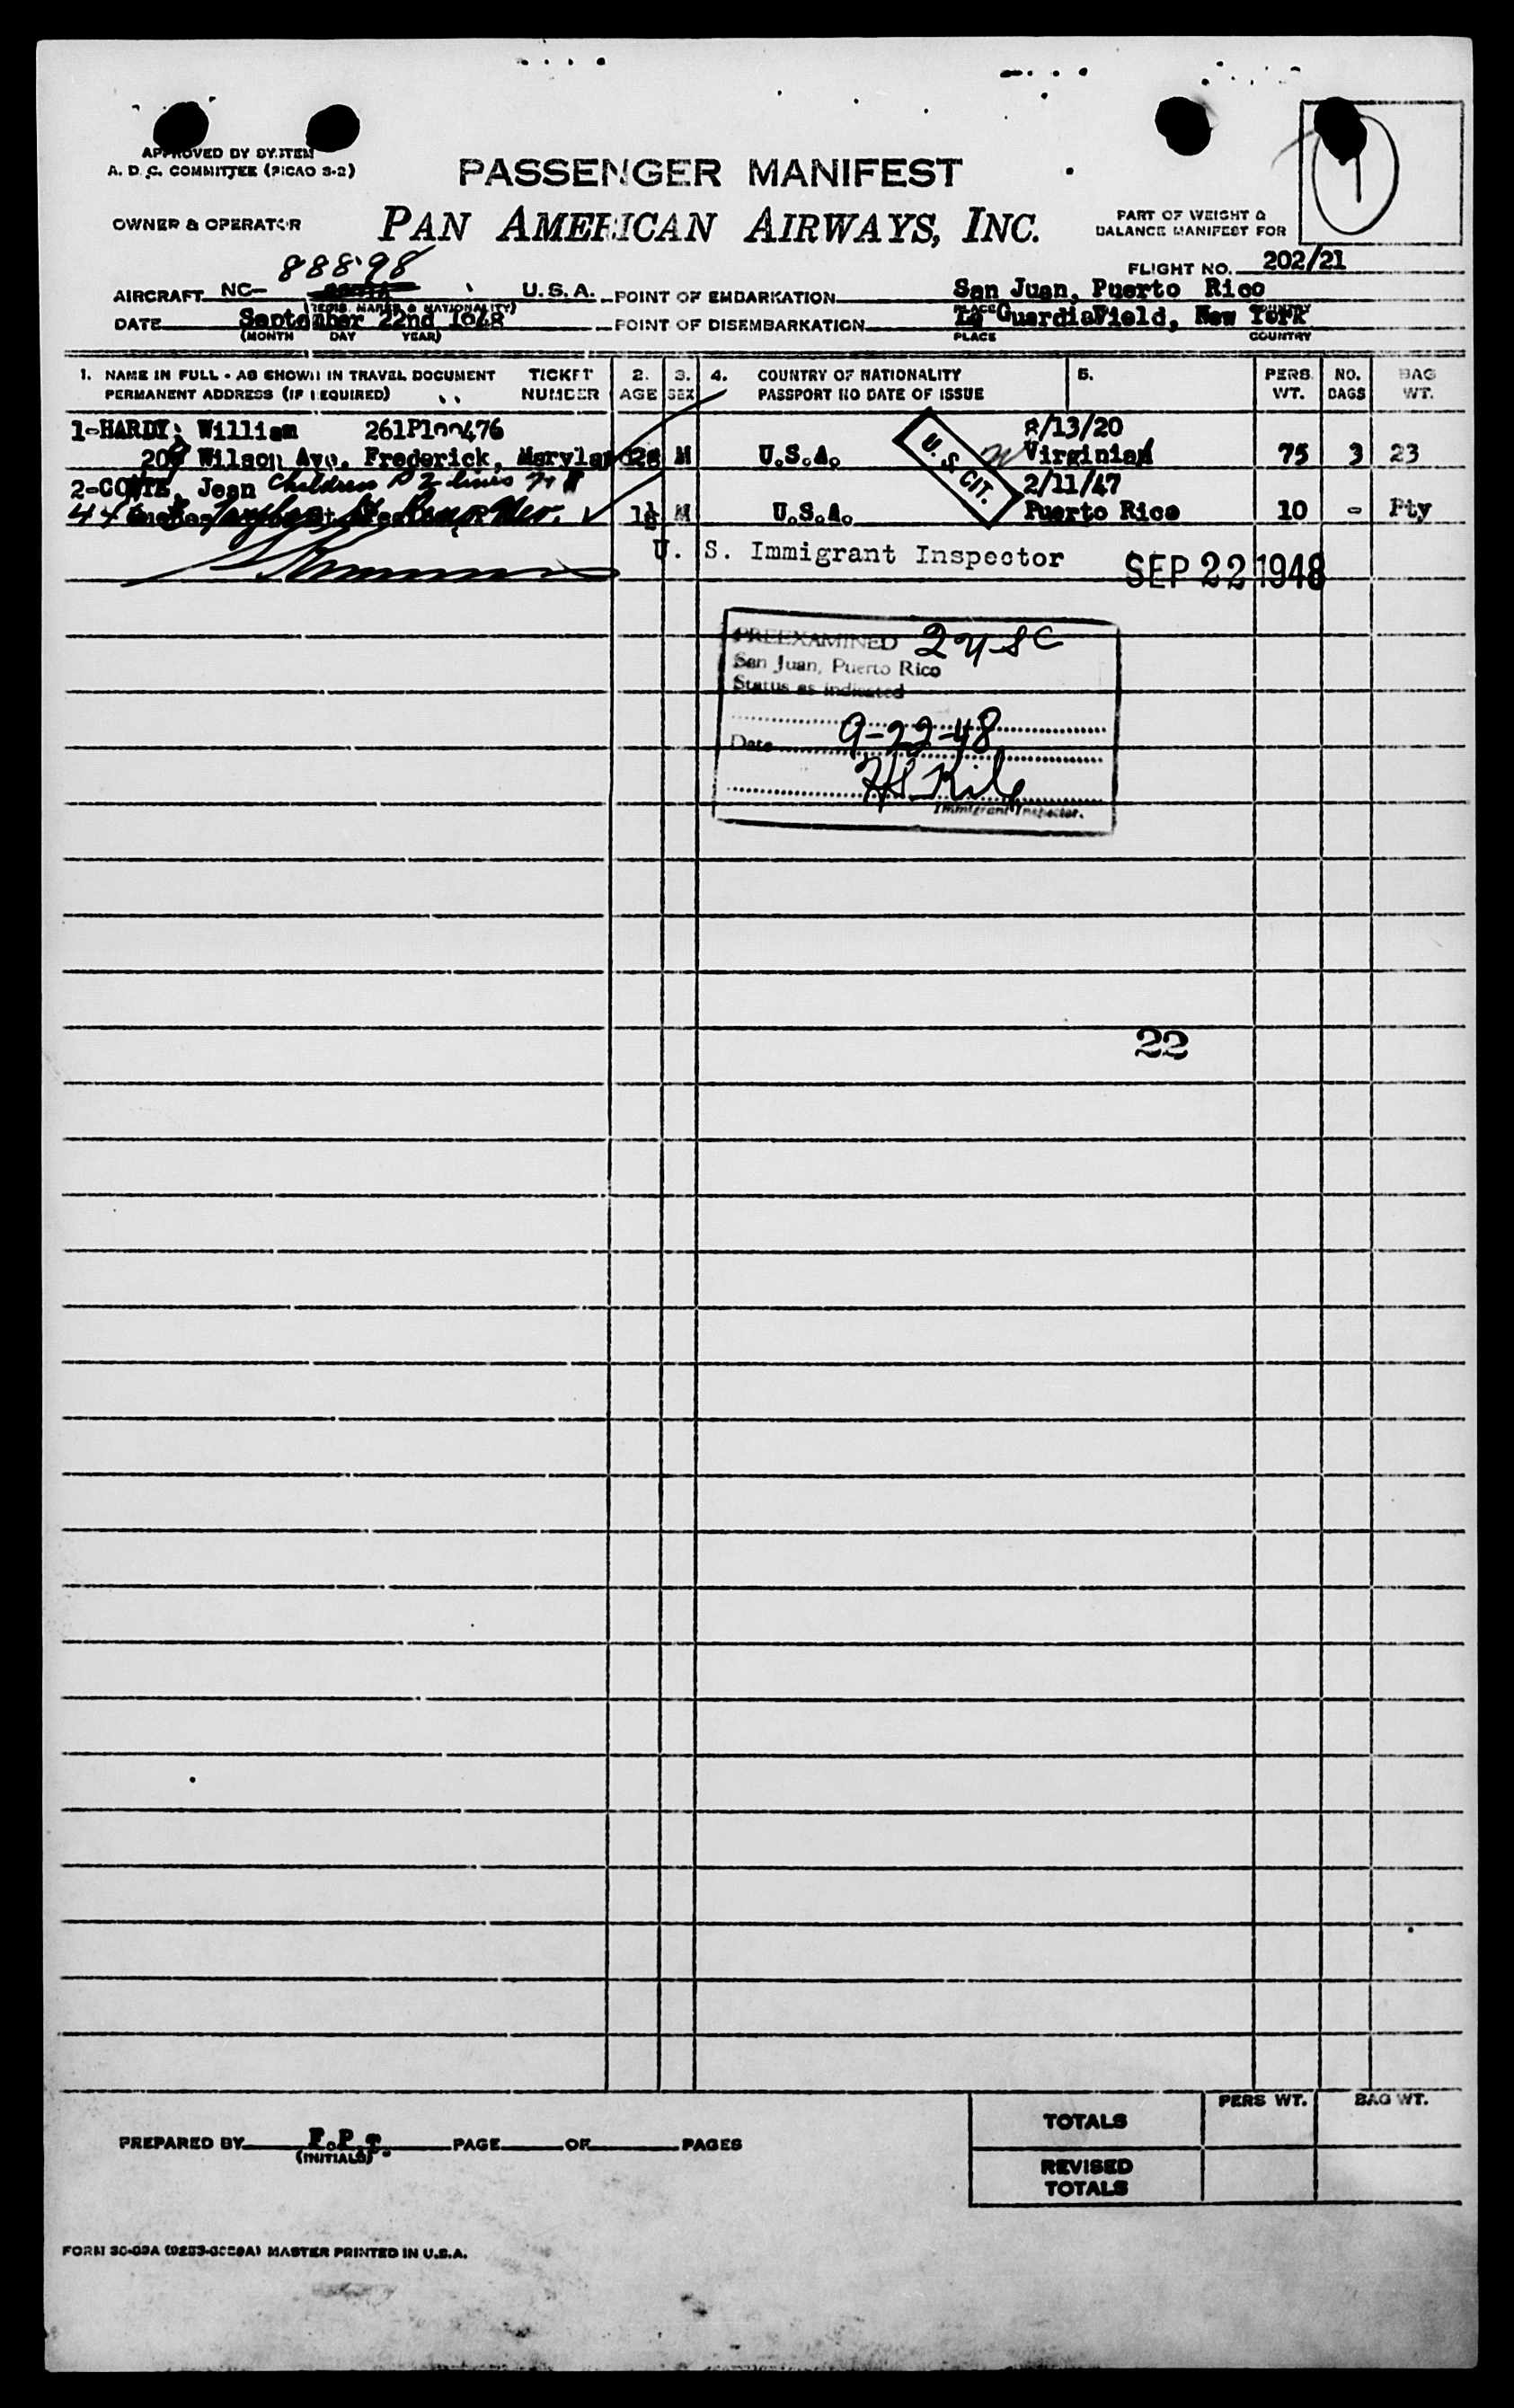 APPROVED BY SYSTEM
A. D. C. COMMITTEE (PICAO S-2)
PASSENGER MANIFEST
OWNER & OPERATOR
PAN AMERICAN AIRWAYS, INC.
PART OF WEIGHT &
BALANCE MANIFEST FOR
88898
FLIGHT NO. 202/21
AIRCRAFT NC- U.S.A. POINT OF EMBARKATION San Juan, Puerto Rico
(REGIS. MARKS & NATIONALITY) PLACE COUNTRY
DATE September 22nd 1948 POINT OF DISEMBARKATION La GuardiaField, New York
(MONTH DAY YEAR) PLACE COUNTRY
1. NAME IN FULL - AS SHOWN IN TRAVEL DOCUMENT TICKET 2. 3. 4. COUNTRY OF NATIONALITY 5. PERS. NO. BAG
PERMANENT ADDRESS (IF REQUIRED) NUMBER AGE SEX PASSPORT NO DATE OF ISSUE WT. BAGS WT.
1-HARDY, William 261P100476 8/13/20
Wilson Ave. Frederick, Maryland 28 M U.S.A. U. S. CIT. Virginia 75 3 23
2- Jean Children 2 lines 2/11/47
M U.S.A. Puerto Rico 10 - Pty
U. S. Immigrant Inspector SEP 22 1948
PREEXAMINED 2 USC
San Juan, Puerto Rico
Status as indicated
Date 9-22-48
Immigrant Inspector.
22
TOTALS PERS WT. BAG WT.
PREPARED BY F.P.T. PAGE OF PAGES
(INITIALS)
REVISED
TOTALS
MASTER PRINTED IN U.S.A.